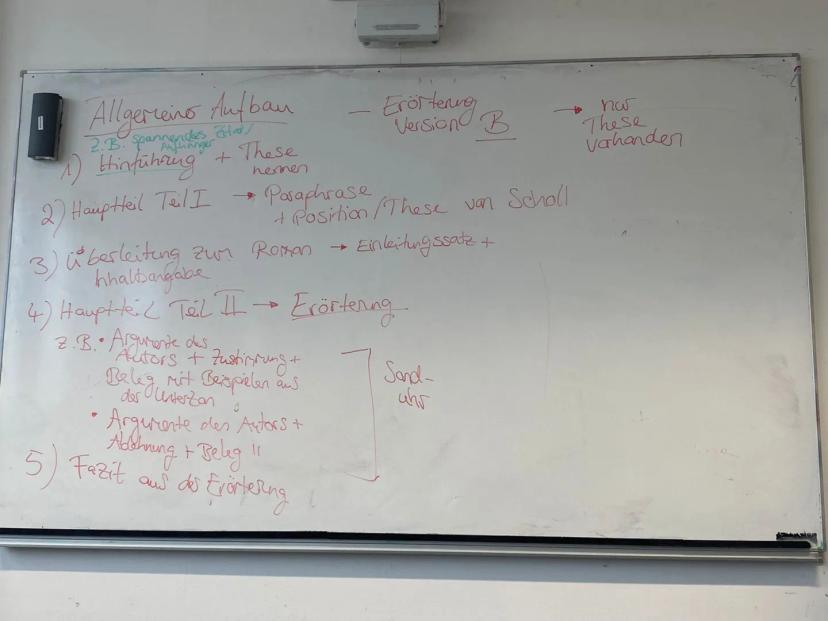 Allgemeiner Aufbau – Erörterung Version B → nur These vorhanden
z.B. spannendes Zitat/
Aufhänger
1) Hinführung + These
nennen
2) Hauptteil Teil I → Paraphrase
+ Position/These von Scholl
3) Überleitung zum Roman → Einleitungssatz +
Inhaltsangabe
4) Hauptteil Teil II → Erörterung
z.B. • Argumente des
Autors + Zustimmung +
Beleg mit Beispielen aus
der Unterzon
• Argumente des Autors +
Ablehnung + Beleg "
Sand-
uhr
5) Fazit aus der Erörterung